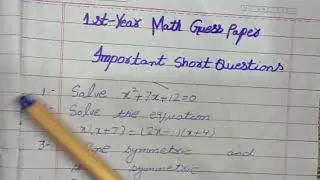 1st-Year Math Guess Paper
Important Short Questions
1- Solve x²+7x+12=0
Solve the equation
x(x+7)=(2x-1)(x+4)
3- symmetric and
symmetric